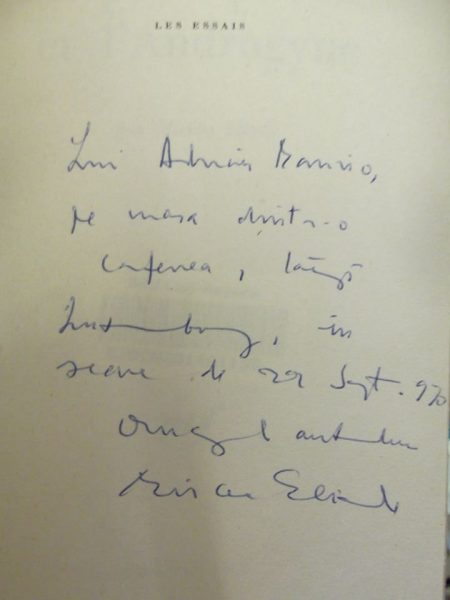 LES ESSAIS
Lui Adrian Marino,
pe masa dintr-o
cafenea, lângă
Luxembourg, în
seara de 22 Sept. 970
Omagiul autorului
Mircea Eliade